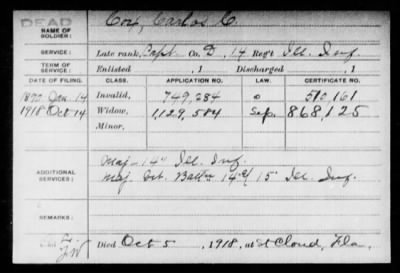 DEAD
NAME OF SOLDIER: Cox, Carlos C.
SERVICE: Late rank, Capt. Co. D, 14 Reg't Ill. Inf.
TERM OF SERVICE: Enlisted , 1 Discharged , 1
DATE OF FILING. CLASS. APPLICATION NO. LAW. CERTIFICATE NO.
1890 Jan. 14 Invalid, 749,284 510,161
1918 Oct 14 Widow, 1,129,584 Sep. 868,125
Minor,
ADDITIONAL SERVICES: Maj. 14" Ill. Inf.
Maj. Vet. Batt'n 14 & 15 Ill. Inf.
REMARKS:
Died Oct 5, 1918, at St Cloud, Fla.